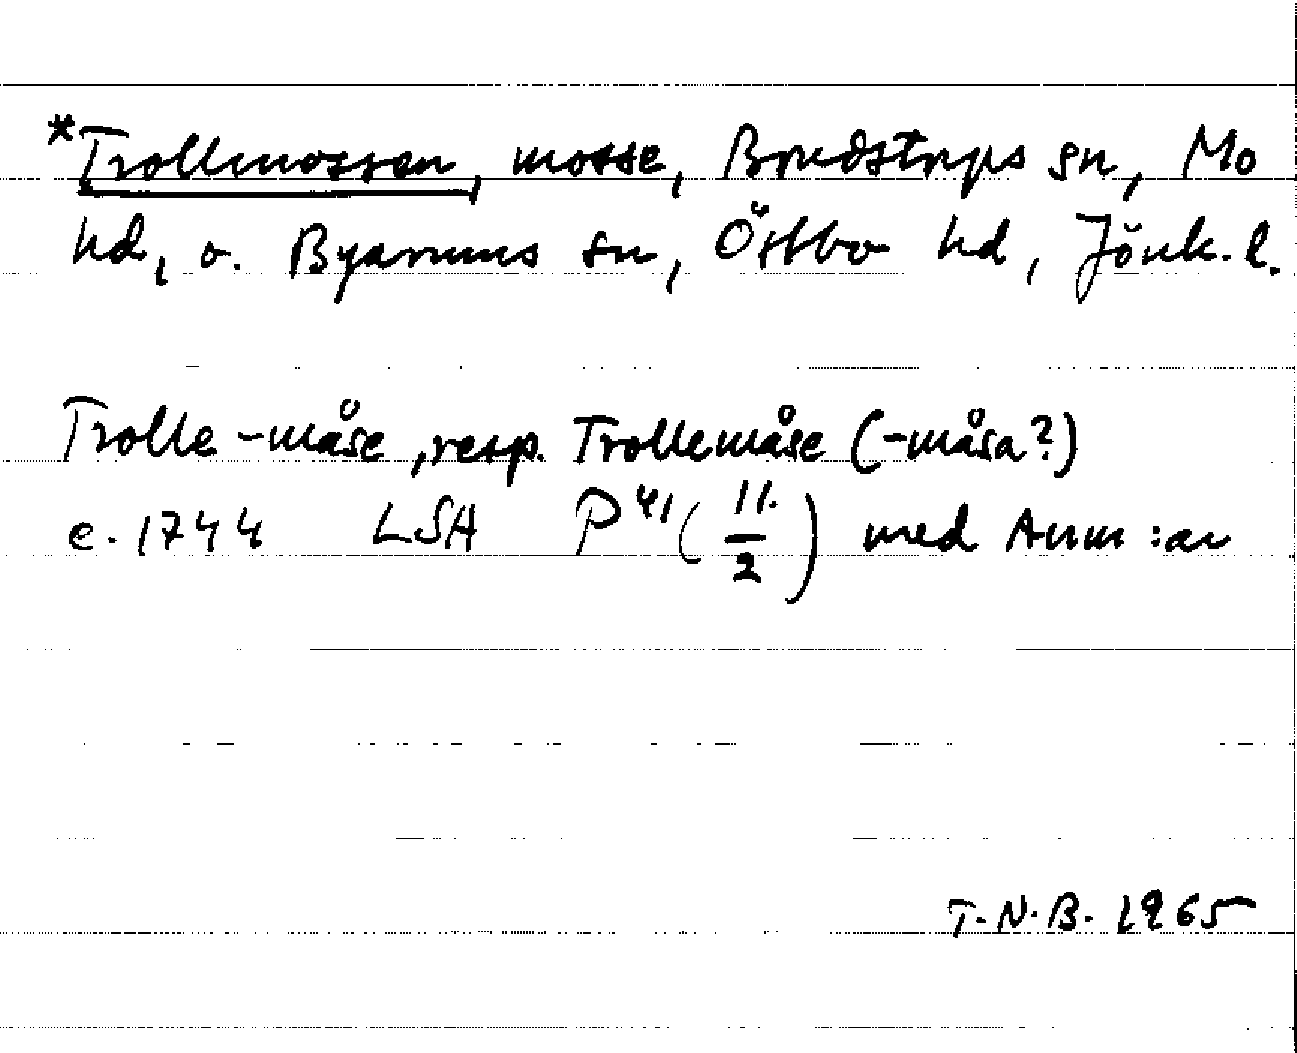 *Trollmossen, mosse, Bredstrups sn, Mo
hd, o. Byarums sn, Östbo hd, Jönk. l.
Trolle-måse, resp. Trollemåse (-måsa?)
c. 1744 LSA P41 (11./2) med Anm:ar
T.N.B. 1965